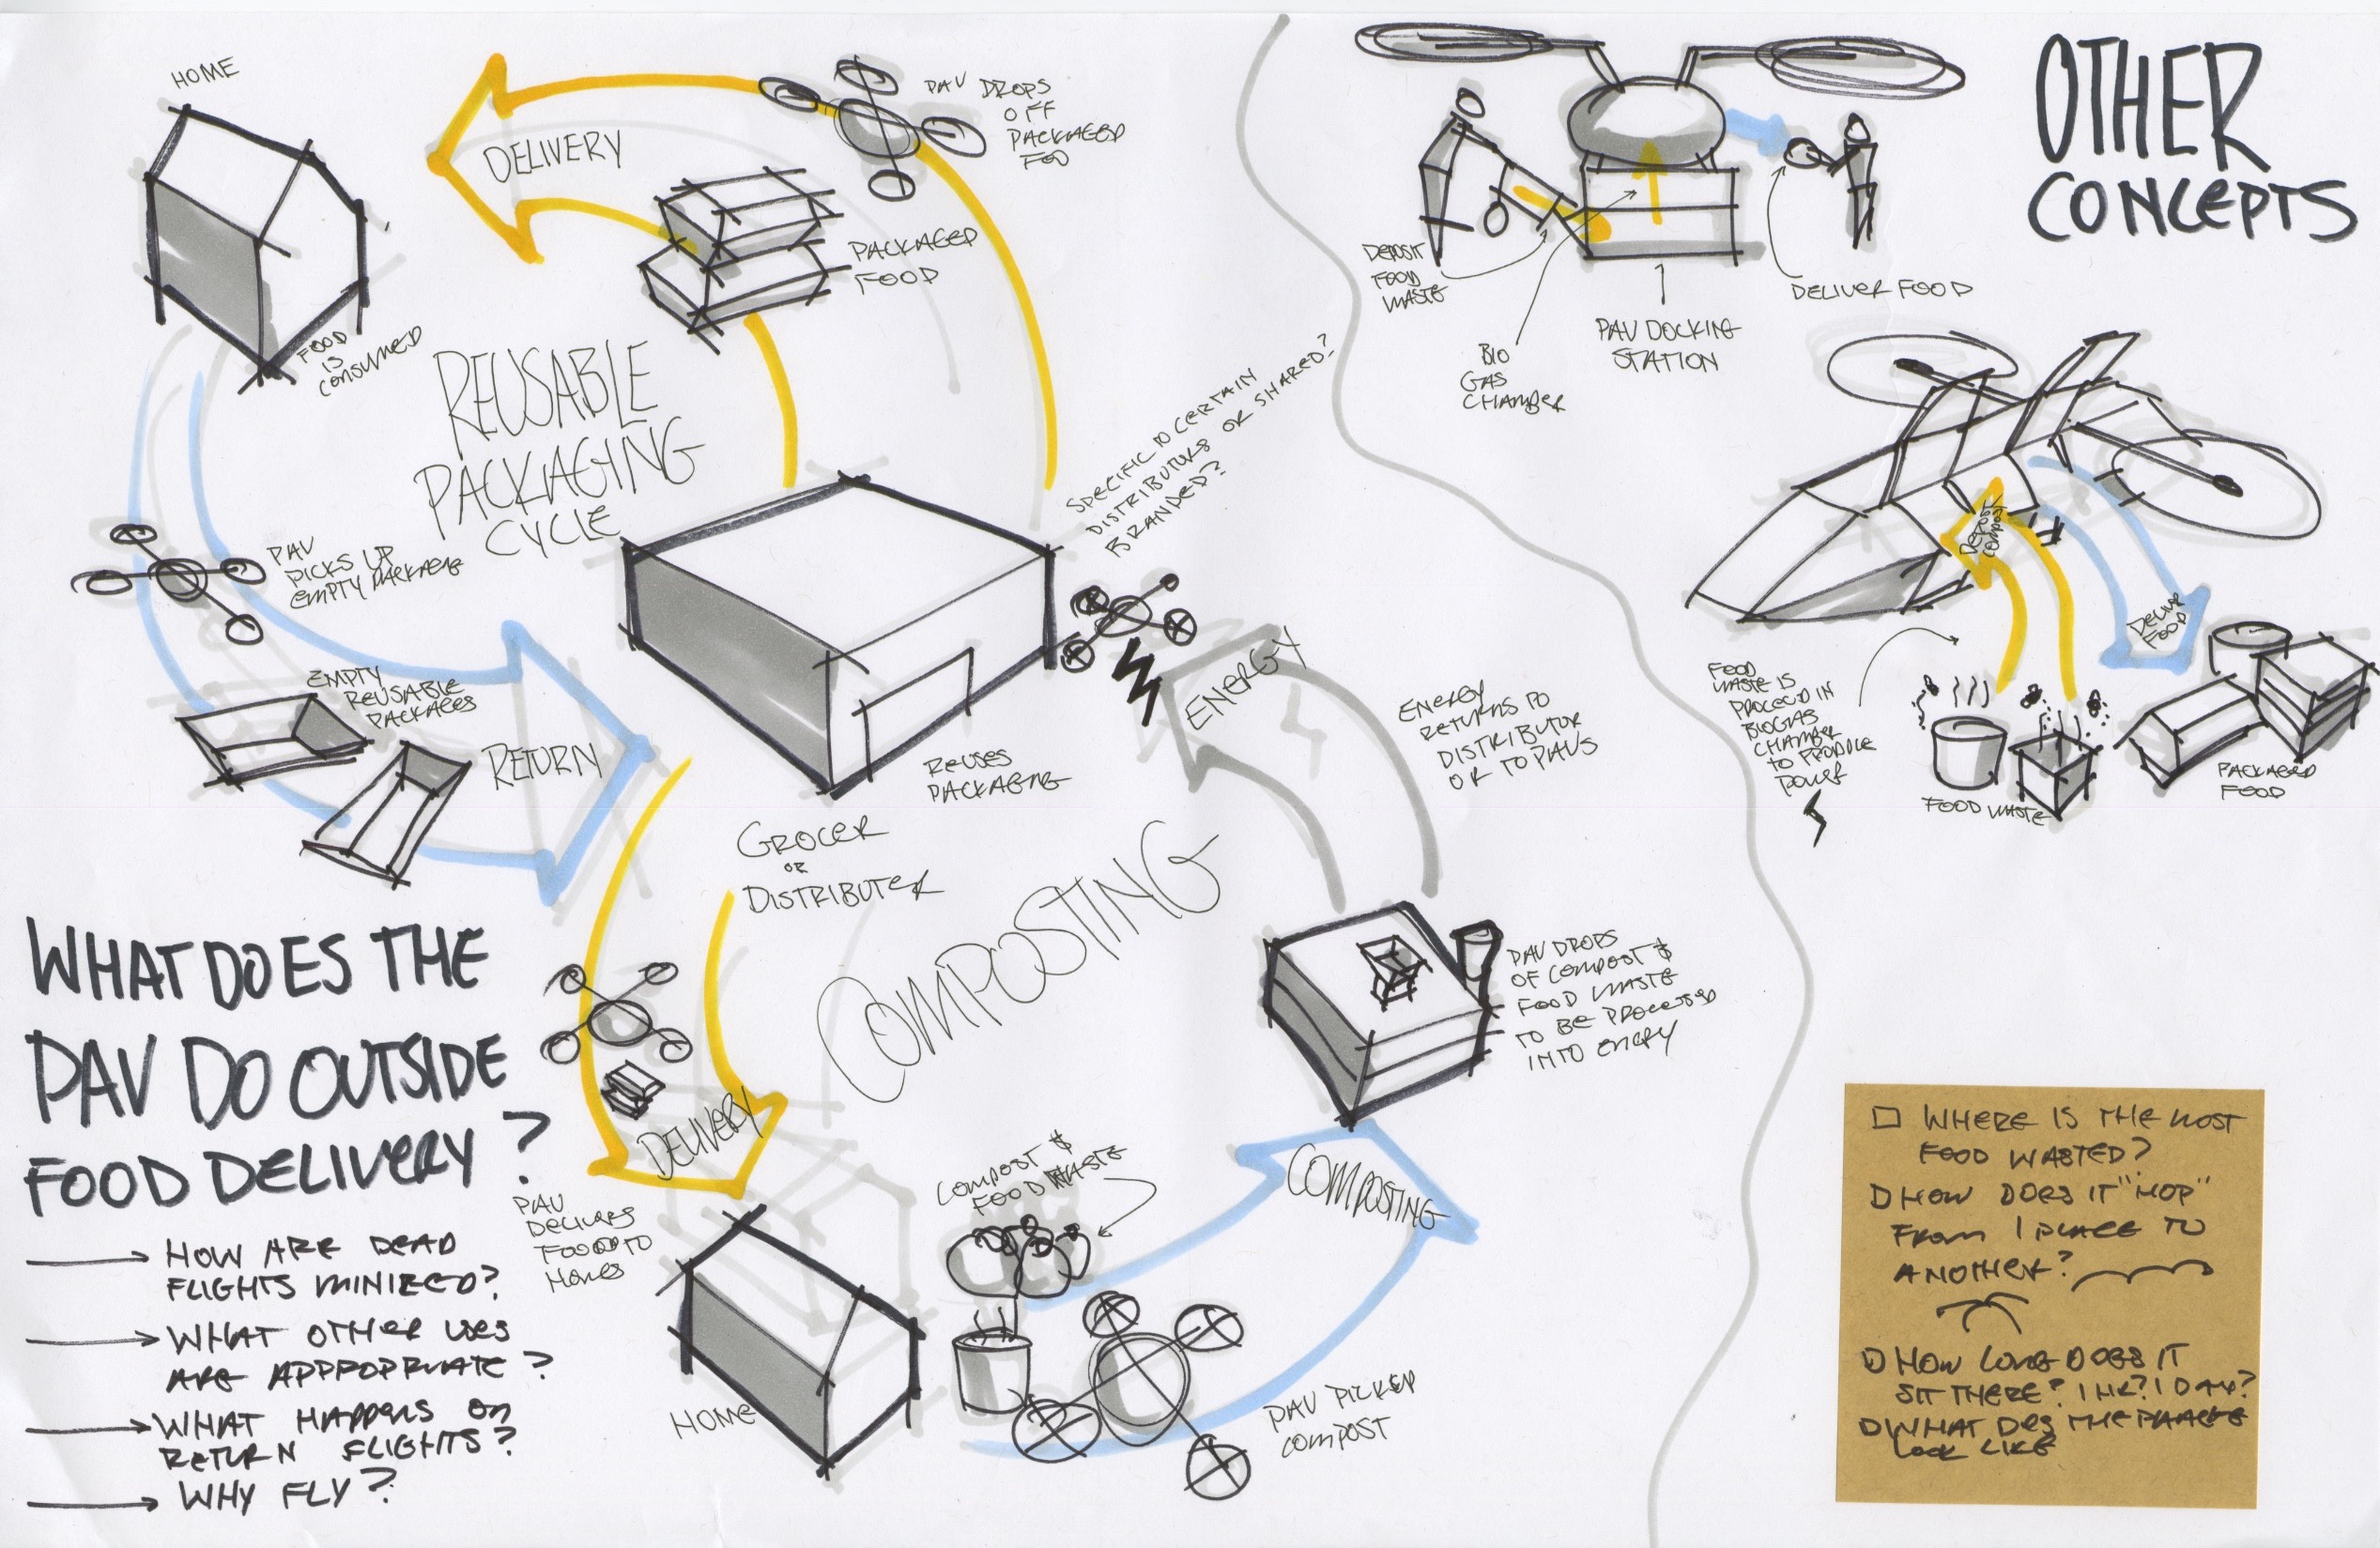 HOME
DELIVERY
PAV DROPS
OFF
PACKAGED
FOD
PACKAGED
FOOD
FOOD
IS
CONSUMED
REUSABLE
PACKAGING
CYCLE
PAV
PICKS UP
EMPTY PACKAGING
EMPTY
REUSABLE
PACKAGES
RETURN
SPECIFIC TO CERTAIN
DISTRIBUTORS OR SHARED?
BRANDED?
REUSES
PACKAGING
GROCER
OR
DISTRIBUTER
ENERGY
ENERGY
RETURNS TO
DISTRIBUTOR
OR TO PAVS
COMPOSTING
PAV DROPS
OF COMPOST &
FOOD WASTE
TO BE PROCESSED
INTO ENERY
DELIVERY
PAV
DELIVERS
FOOD TO
HOMES
HOME
COMPOST &
FOOD WASTE
COMPOSTING
PAV PICKED
COMPOST
WHAT DOES THE
PAV DO OUTSIDE
FOOD DELIVERY?
HOW ARE DEAD
FLIGHTS MINIZED?
WHAT OTHER USES
ARE APPROPRIATE?
WHAT HAPPENS ON
RETURN FLIGHTS?
WHY FLY?
OTHER
CONCEPTS
DEPOSIT
FOOD
WASTE
BIO
GAS
CHAMBER
PAV DOCKING
STATION
DELIVER FOOD
DEPOSIT
COMPOST
DELIVER
FOOD
FOOD
WASTE IS
PROCEED IN
BIOGAS
CHAMBER
TO PRODUCE
POWER
FOOD WASTE
PACKAGED
FOOD
WHERE IS THE MOST
FOOD WASTED?
HOW DOES IT "HOP"
FROM 1 PLACE TO
ANOTHER?
HOW LONG DOES IT
SIT THERE? 1 HR? 1 DAY?
WHAT DOES THE
LOOK LIKE